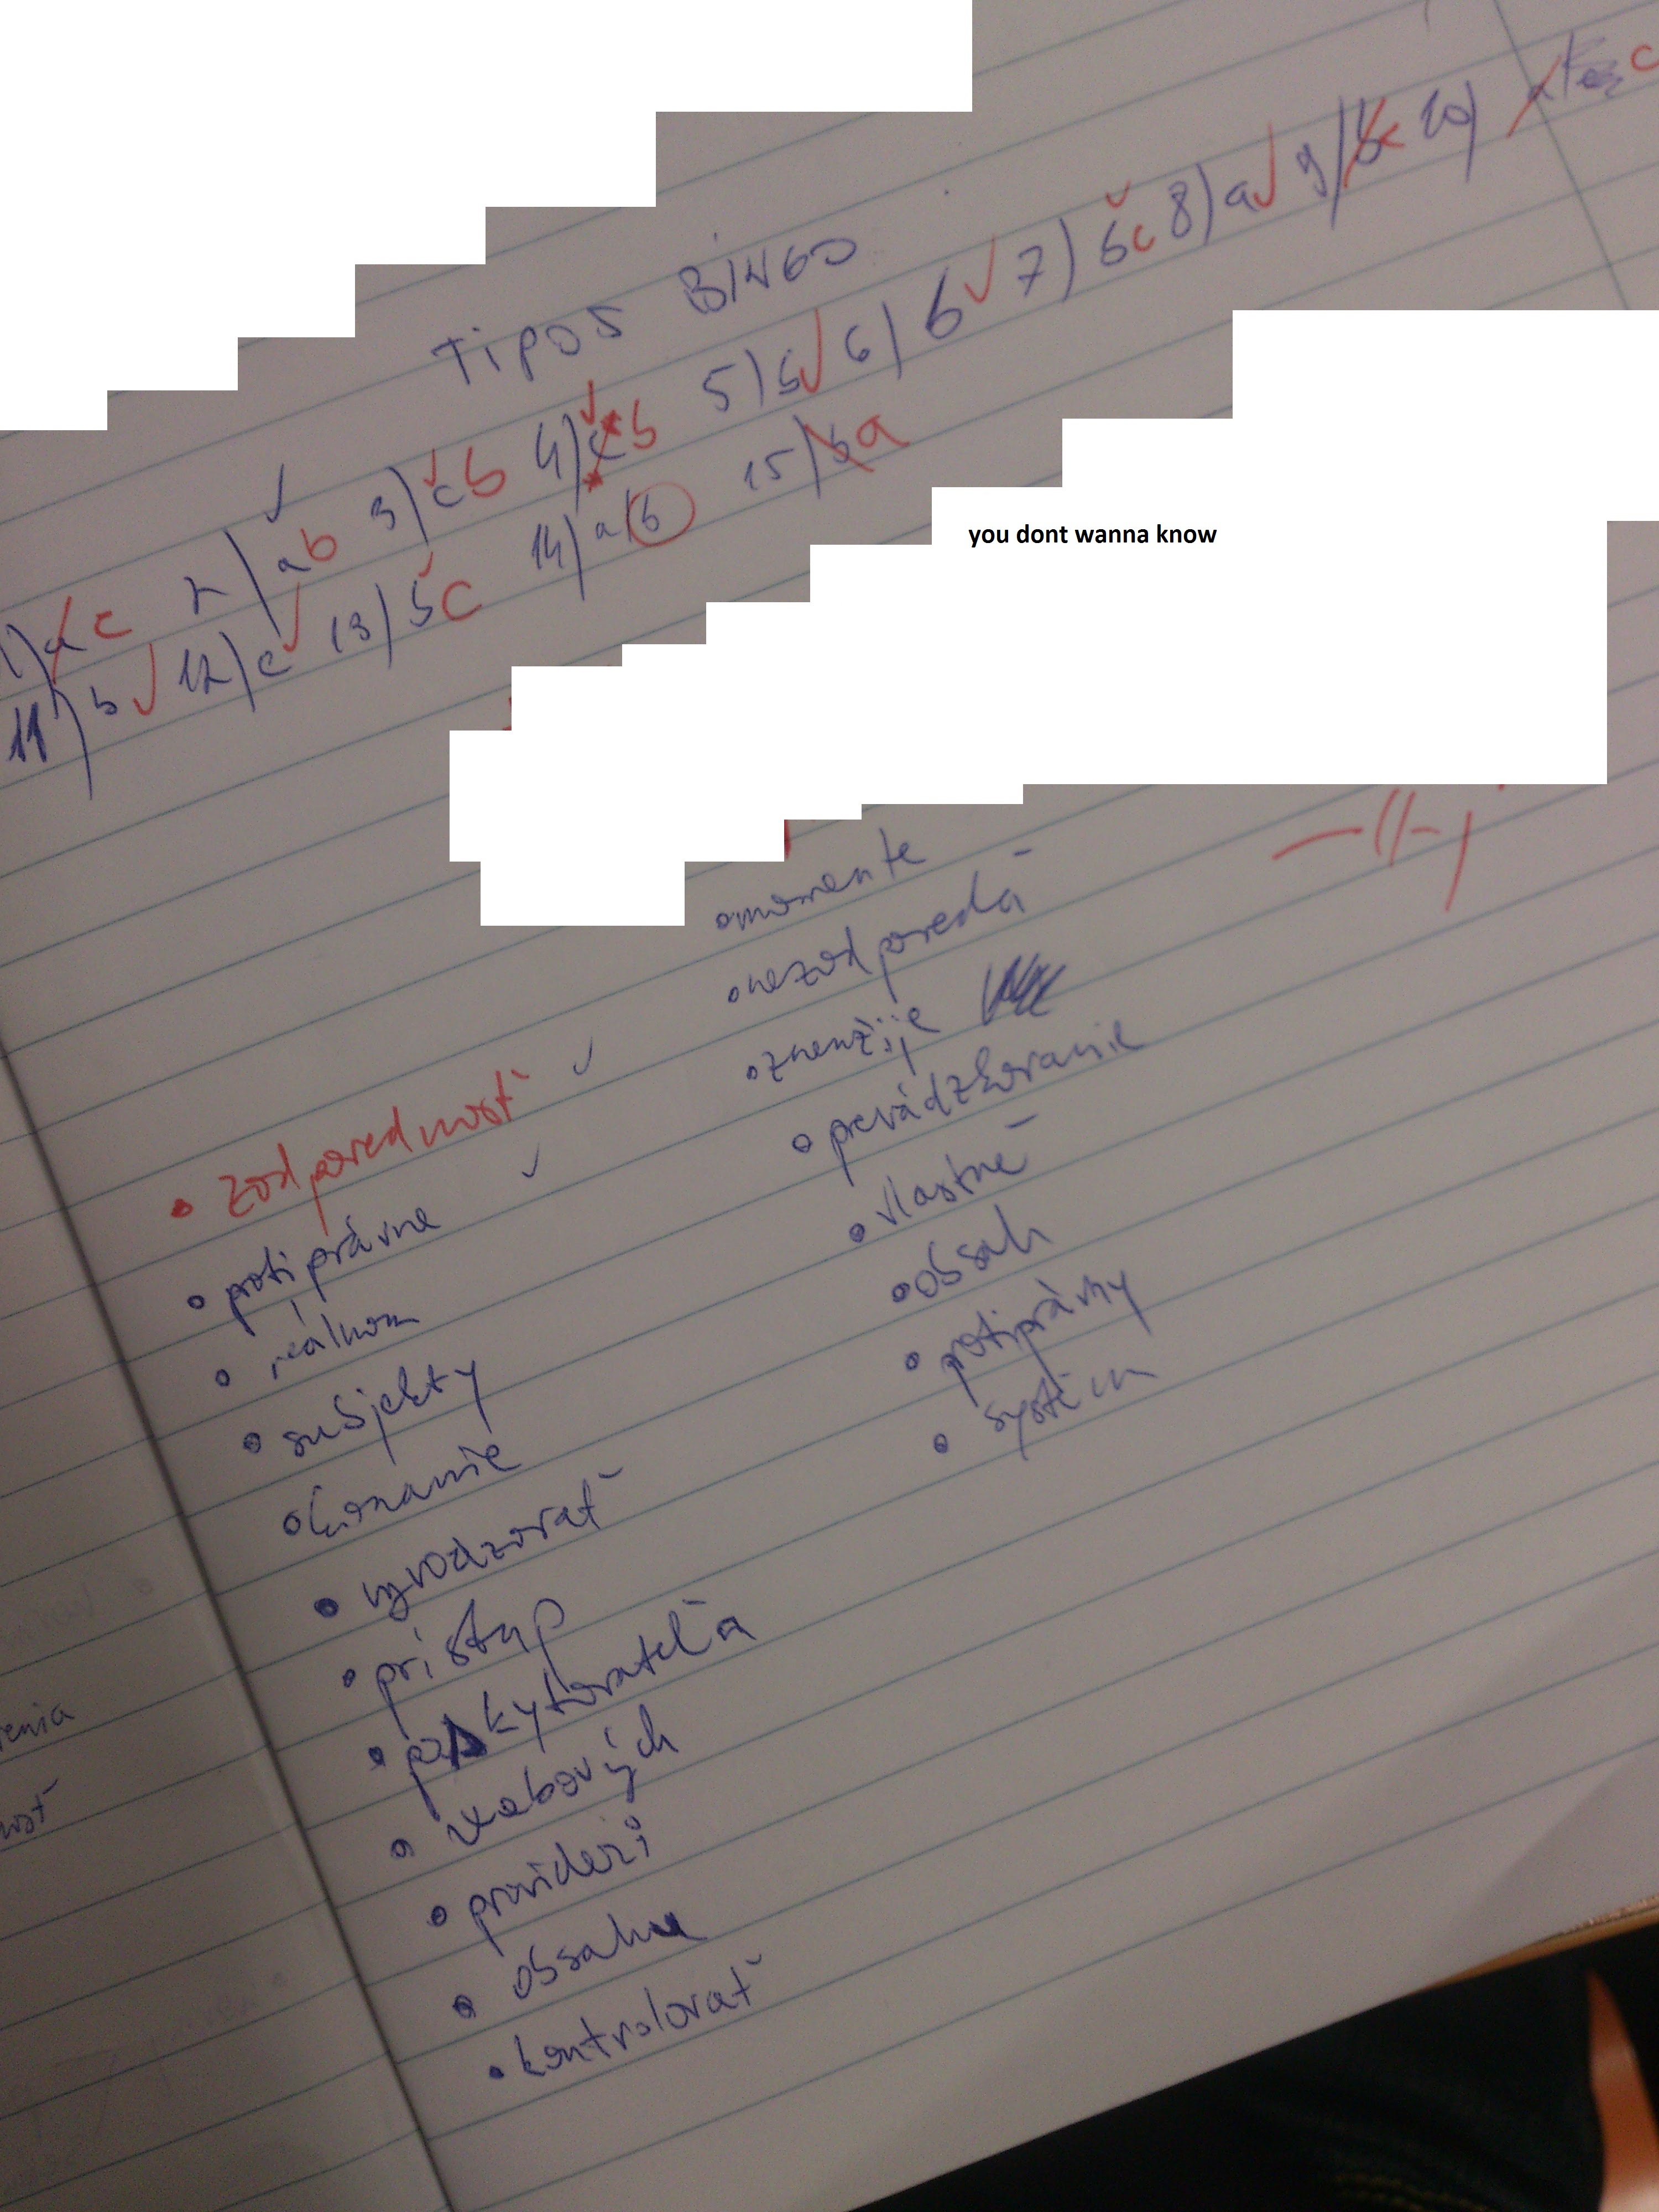 TIPOS BINGO
1) a c 2) a b 3) c b 4) c b 5) b 6) b 7) b c 8) a 9) b c 10) a c
11) b 12) c 13) b c 14) a/b 15) b a
you dont wanna know
• zodpovednosť
• protiprávne
• reálnom
• subjekty
• konanie
• vyvodzovať
• prístup
• poskytovateľa
• webových
• provideri
• obsahu
• kontrolovať
• momente
• nezodpovedá
• zneužije
• prevádzkovanie
• vlastné
• obsah
• protiprávny
• systém
enia
nosť